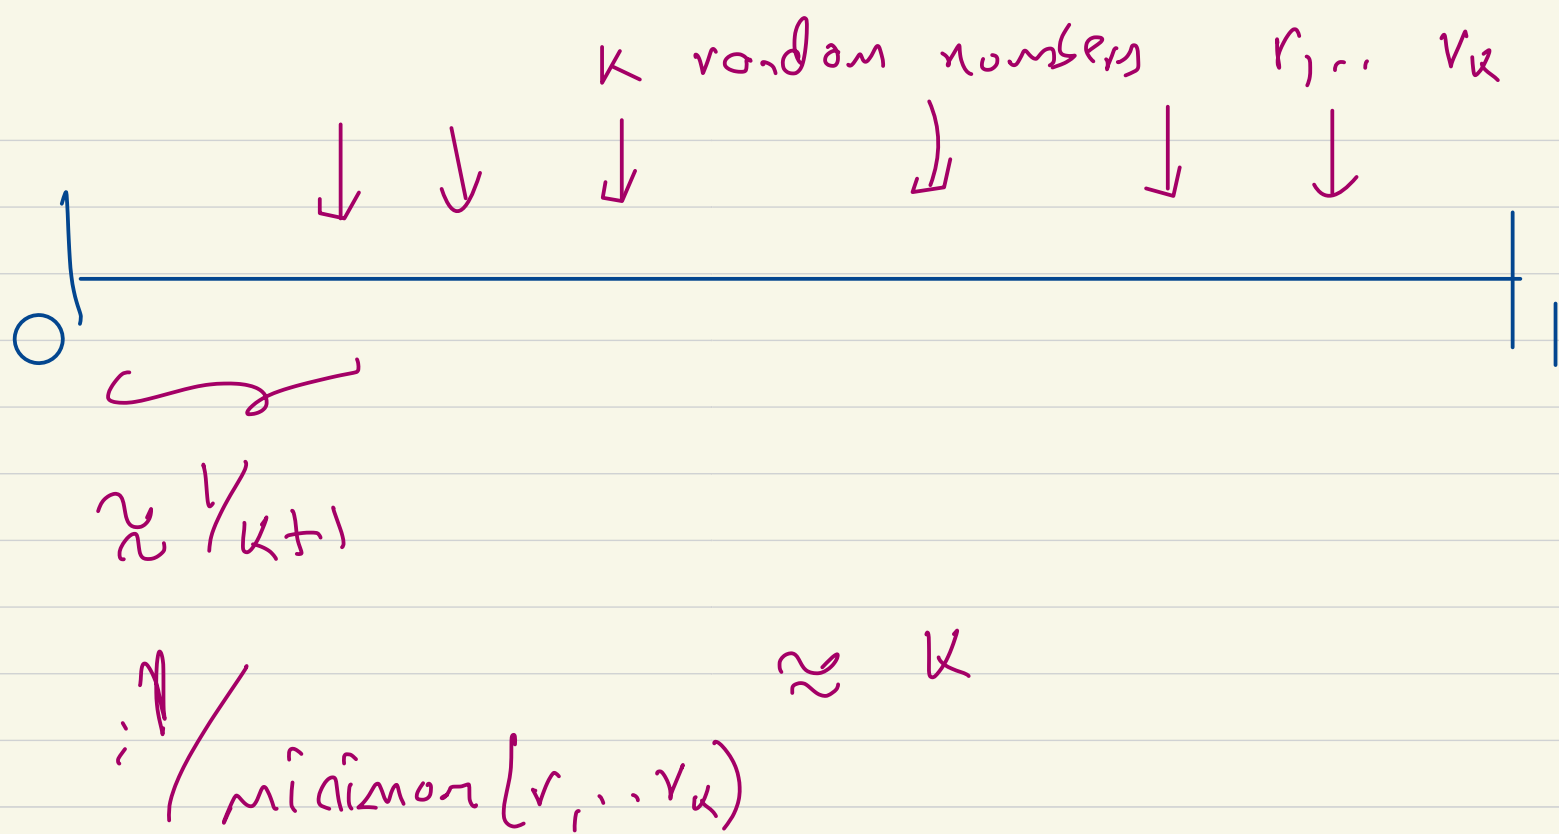 K random numbers r1... rk
0
1
≈ 1/k+1
≈ K
1/minimum(r1...rk)